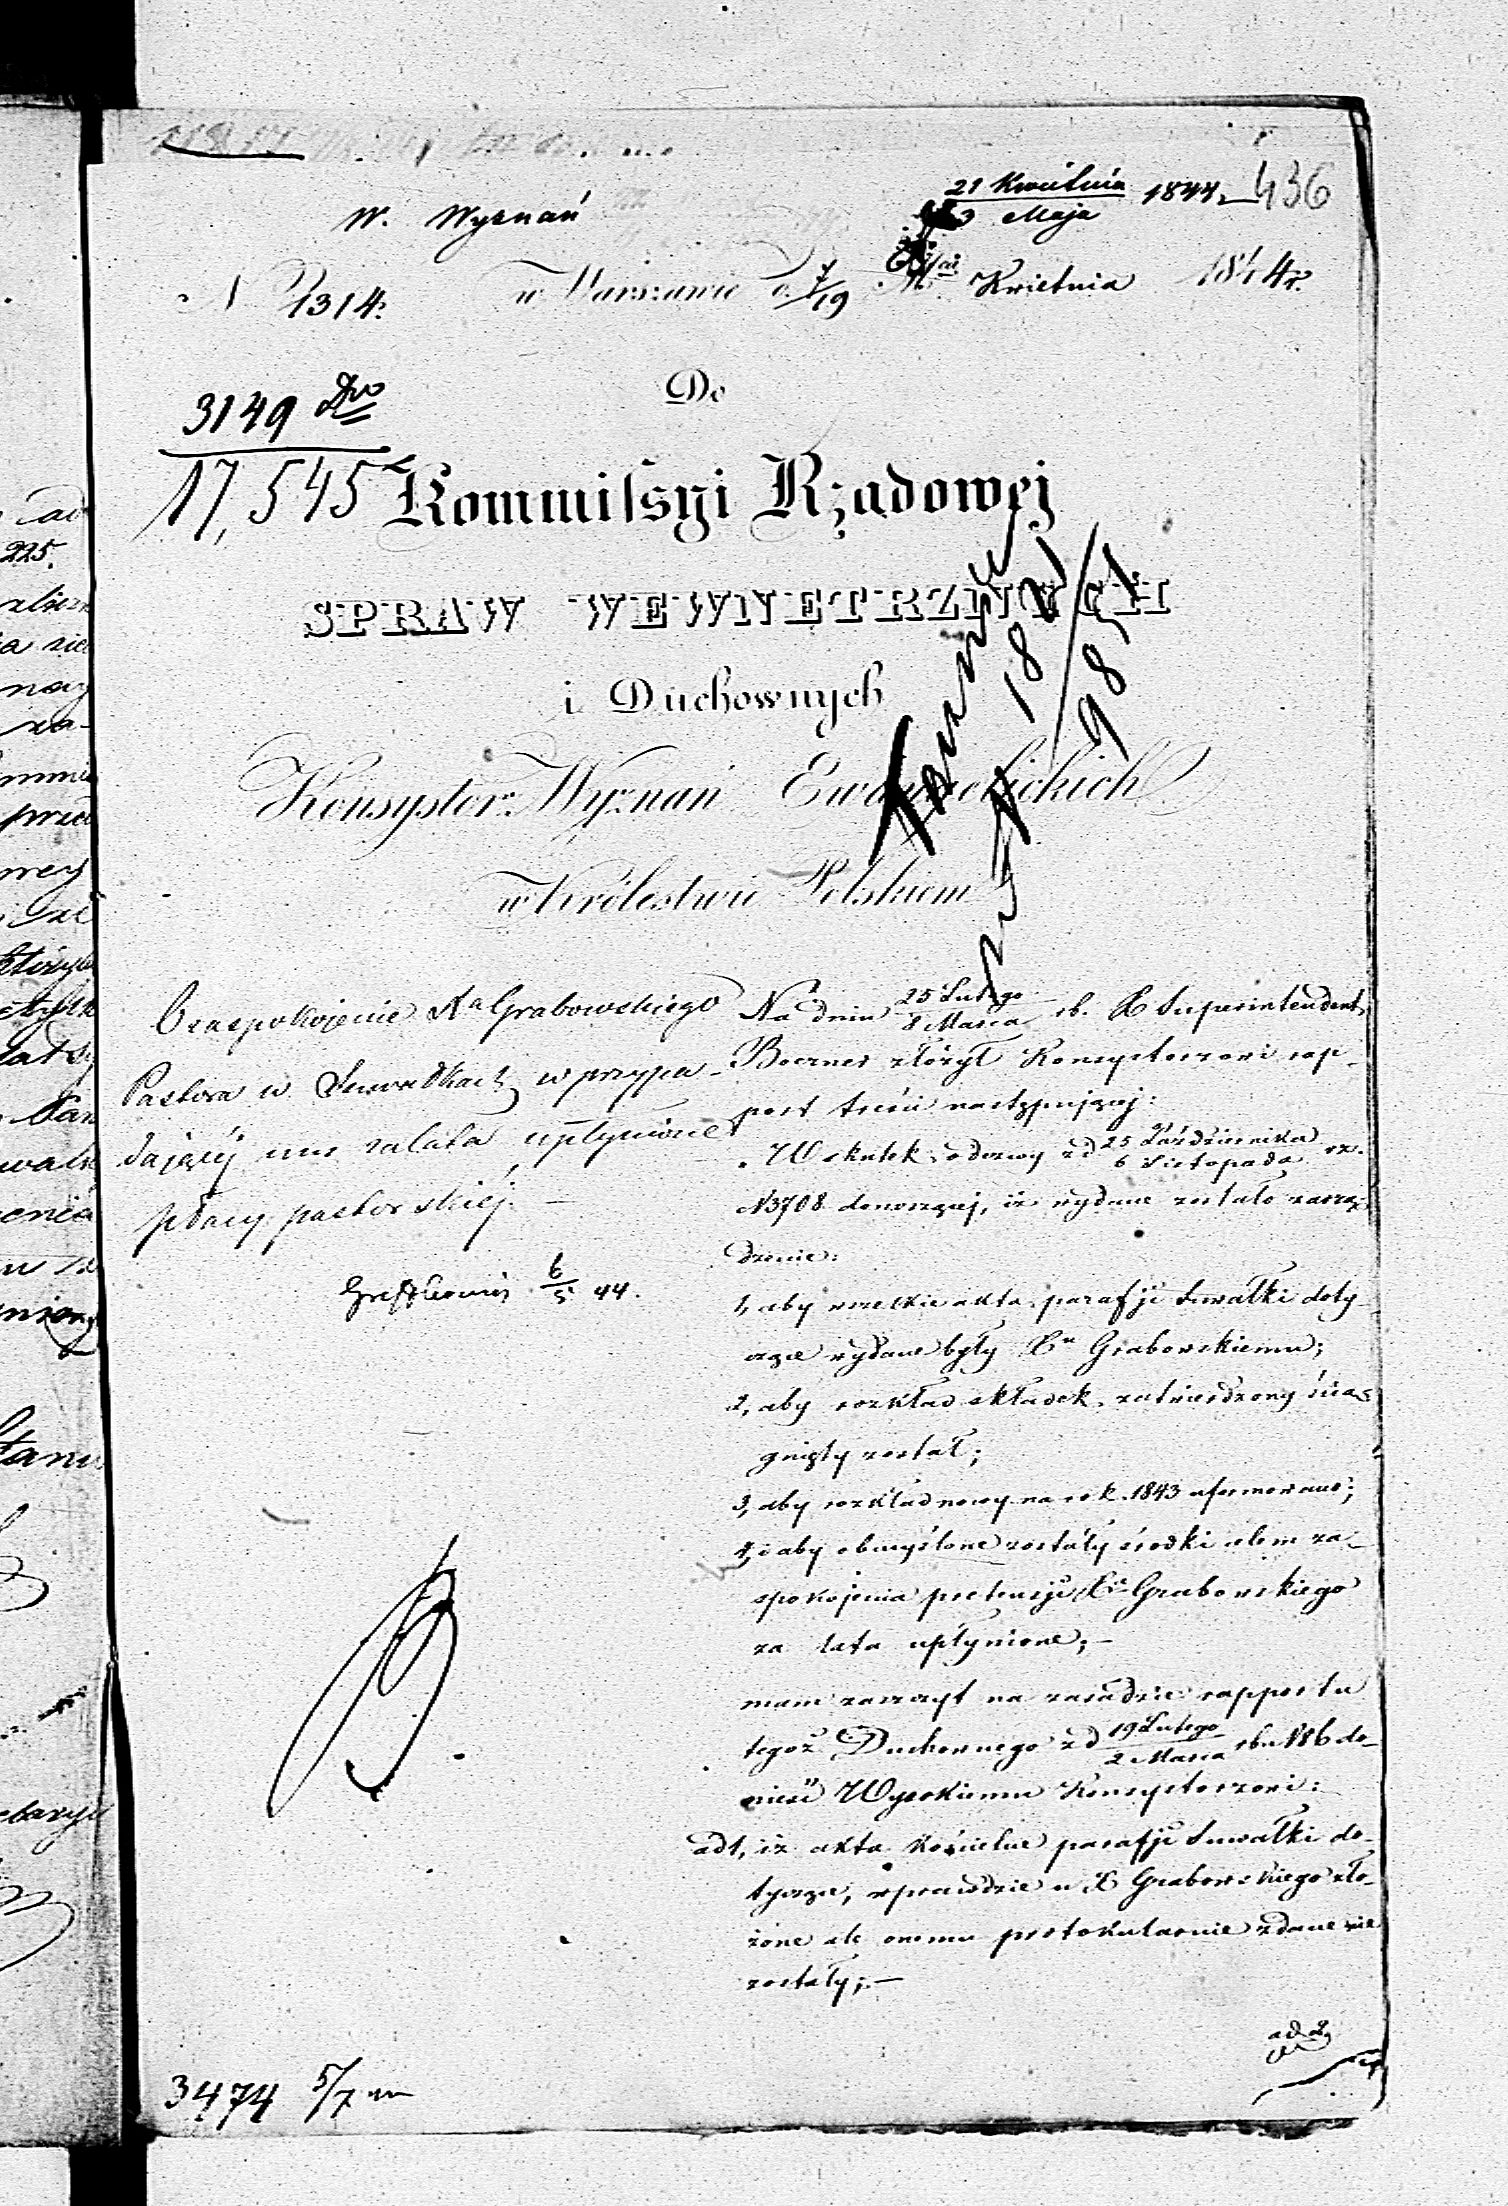 436
21 Kwietnia 1844
3 Maja
W. Wyznań
N 1314. w Warszawie d. 7/19 Kwietnia 1844 r.
3149
17,545
Do
Kommissyi Rządowej
SPRAW WEWNETRZNYCH
i Duchownych
Konsystorz Wyznań Ewangelickich
w Królestwie Polskiem
O zaspokojenie Xa Grabowskiego
Pastora w Suwałkach w przypa-
dającéj mu za lata upłynione
płacy pastorskiéj. —
6/5 44.
Na dniu 25 Lutego / 8 Marca rb. X Superintendent
Boerner złożył Konsystorzowi rap-
port treści następującej:
W skutek odezwy z d 25 Października / 6 Listopada rz.
N3708 donoszącej, iż wydane zostało zarzą-
dzenie:
1, aby wszelkie akta parafji Suwałki doty-
czące wydane były Xu Grabowskiemu;
2, aby rozkład składek zatwierdzony ścią-
gnięty został;
3, aby rozkład nowy na rok 1843 uformowano;
4, i aby obmyślone zostały środki celem za-
spokojenia pretensji Xa Grabowskiego
za lata upłynione; —
mam zaszczyt na zasadzie rapportu
tegoż Duchownego z d 19 Lutego / 2 Marca rb. N 86 do-
nieść Wysokiemu Konsystorzowi:
ad 1, iż akta kościelne parafji Suwałki do-
tyczące, wprawdzie u X Grabowskiego zło-
żone ale onemu protokularnie zdane nie
zostały; —
ad 2,
3474 5/7